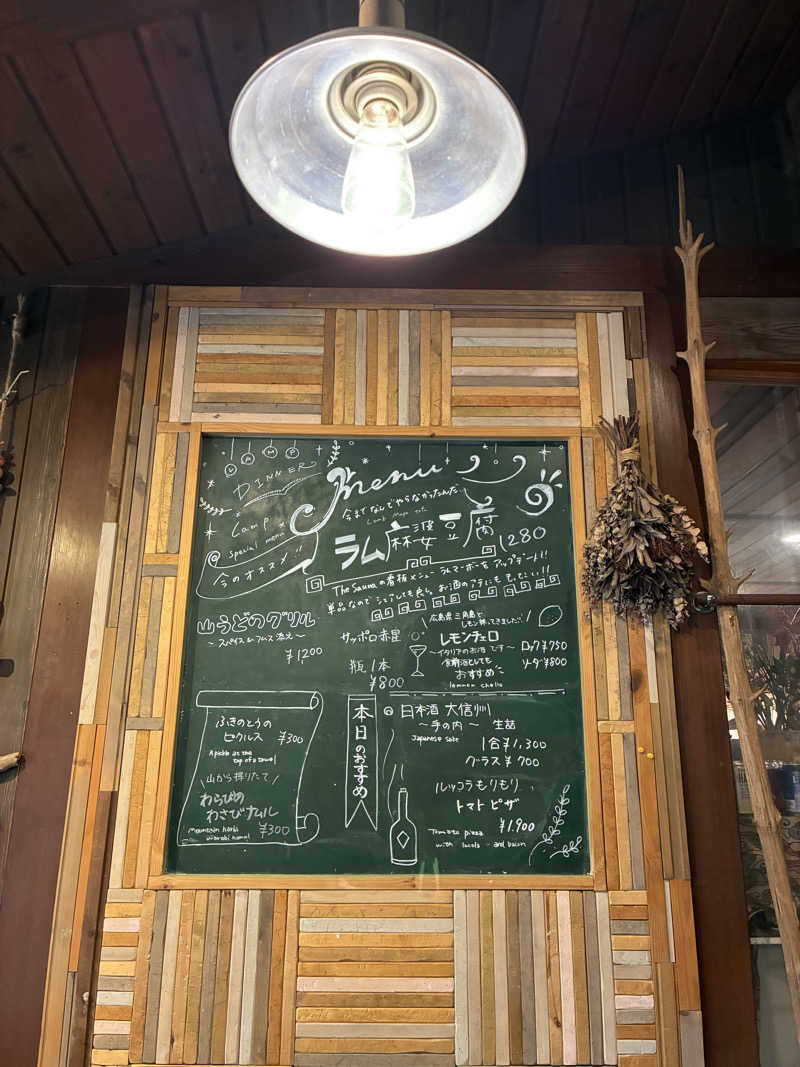 LAMP
DINNER
Menu
Lamp's
Special menu
今のオススメ!!
今までなんでやらなかったんだ…
ラム麻婆豆腐
1280
The Saunaの看板メニュー ラムマーボーをアップデート!!
単品なのでシェアしても良し。お酒のアテにもしてこい!!
山うどのグリル
～スパイス&ハムス添え～
¥1,200
サッポロ赤星
瓶1本
¥800
広島県 三角島で
レモン狩ってきました!
レモンチェロ
～イタリアのお酒です～
食前酒としても
おすすめ
ロック¥750
ソーダ¥800
lemmon chello
ふきのとうの
ピクルス ¥300
A pickle at the
top of a towel
山から採りたて
わらびの
わさびナムル
Mountain herb
warabi namul
¥300
本日のおすすめ
日本酒 大信州
～手の内～ 生詰
Japanese sake
1合¥1,300
グラス¥700
ルッコラもりもり
トマトピザ
¥1,900
Tomato pizza
with lucola and bacon